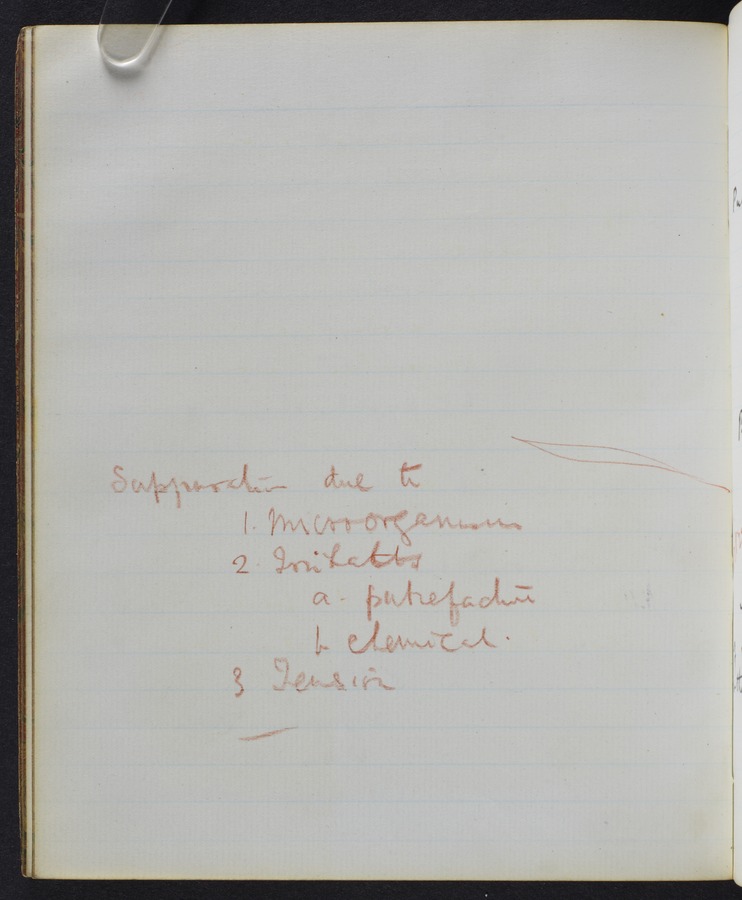 Suppuration due to
1. Microorganisms
2. Irritants
a. putrefactive
b chemical.
3 Tension